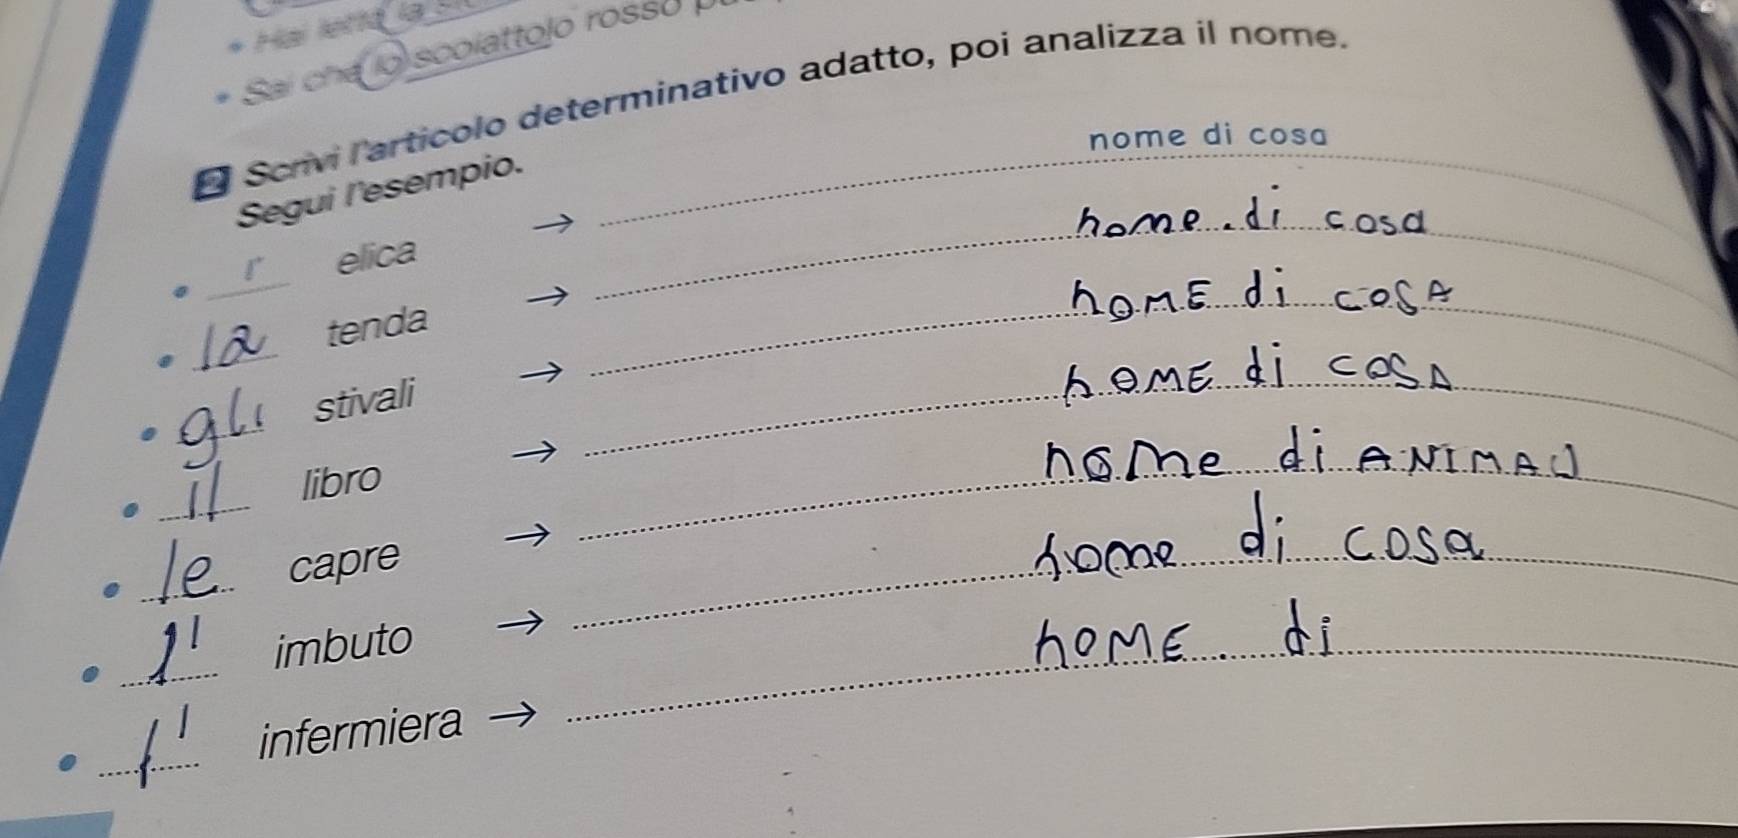 Sai che lo scoiattolo rosso
2 Scrivi l'articolo determinativo adatto, poi analizza il nome.
Segui l'esempio.
• l' elica → nome di cosa
• la tenda → nome di cosa
• gli stivali → nome di cosA
• il libro → nome di cosA
• le capre → nome di ANIMALI
• l' imbuto → nome di cosa
• l' infermiera → nome di